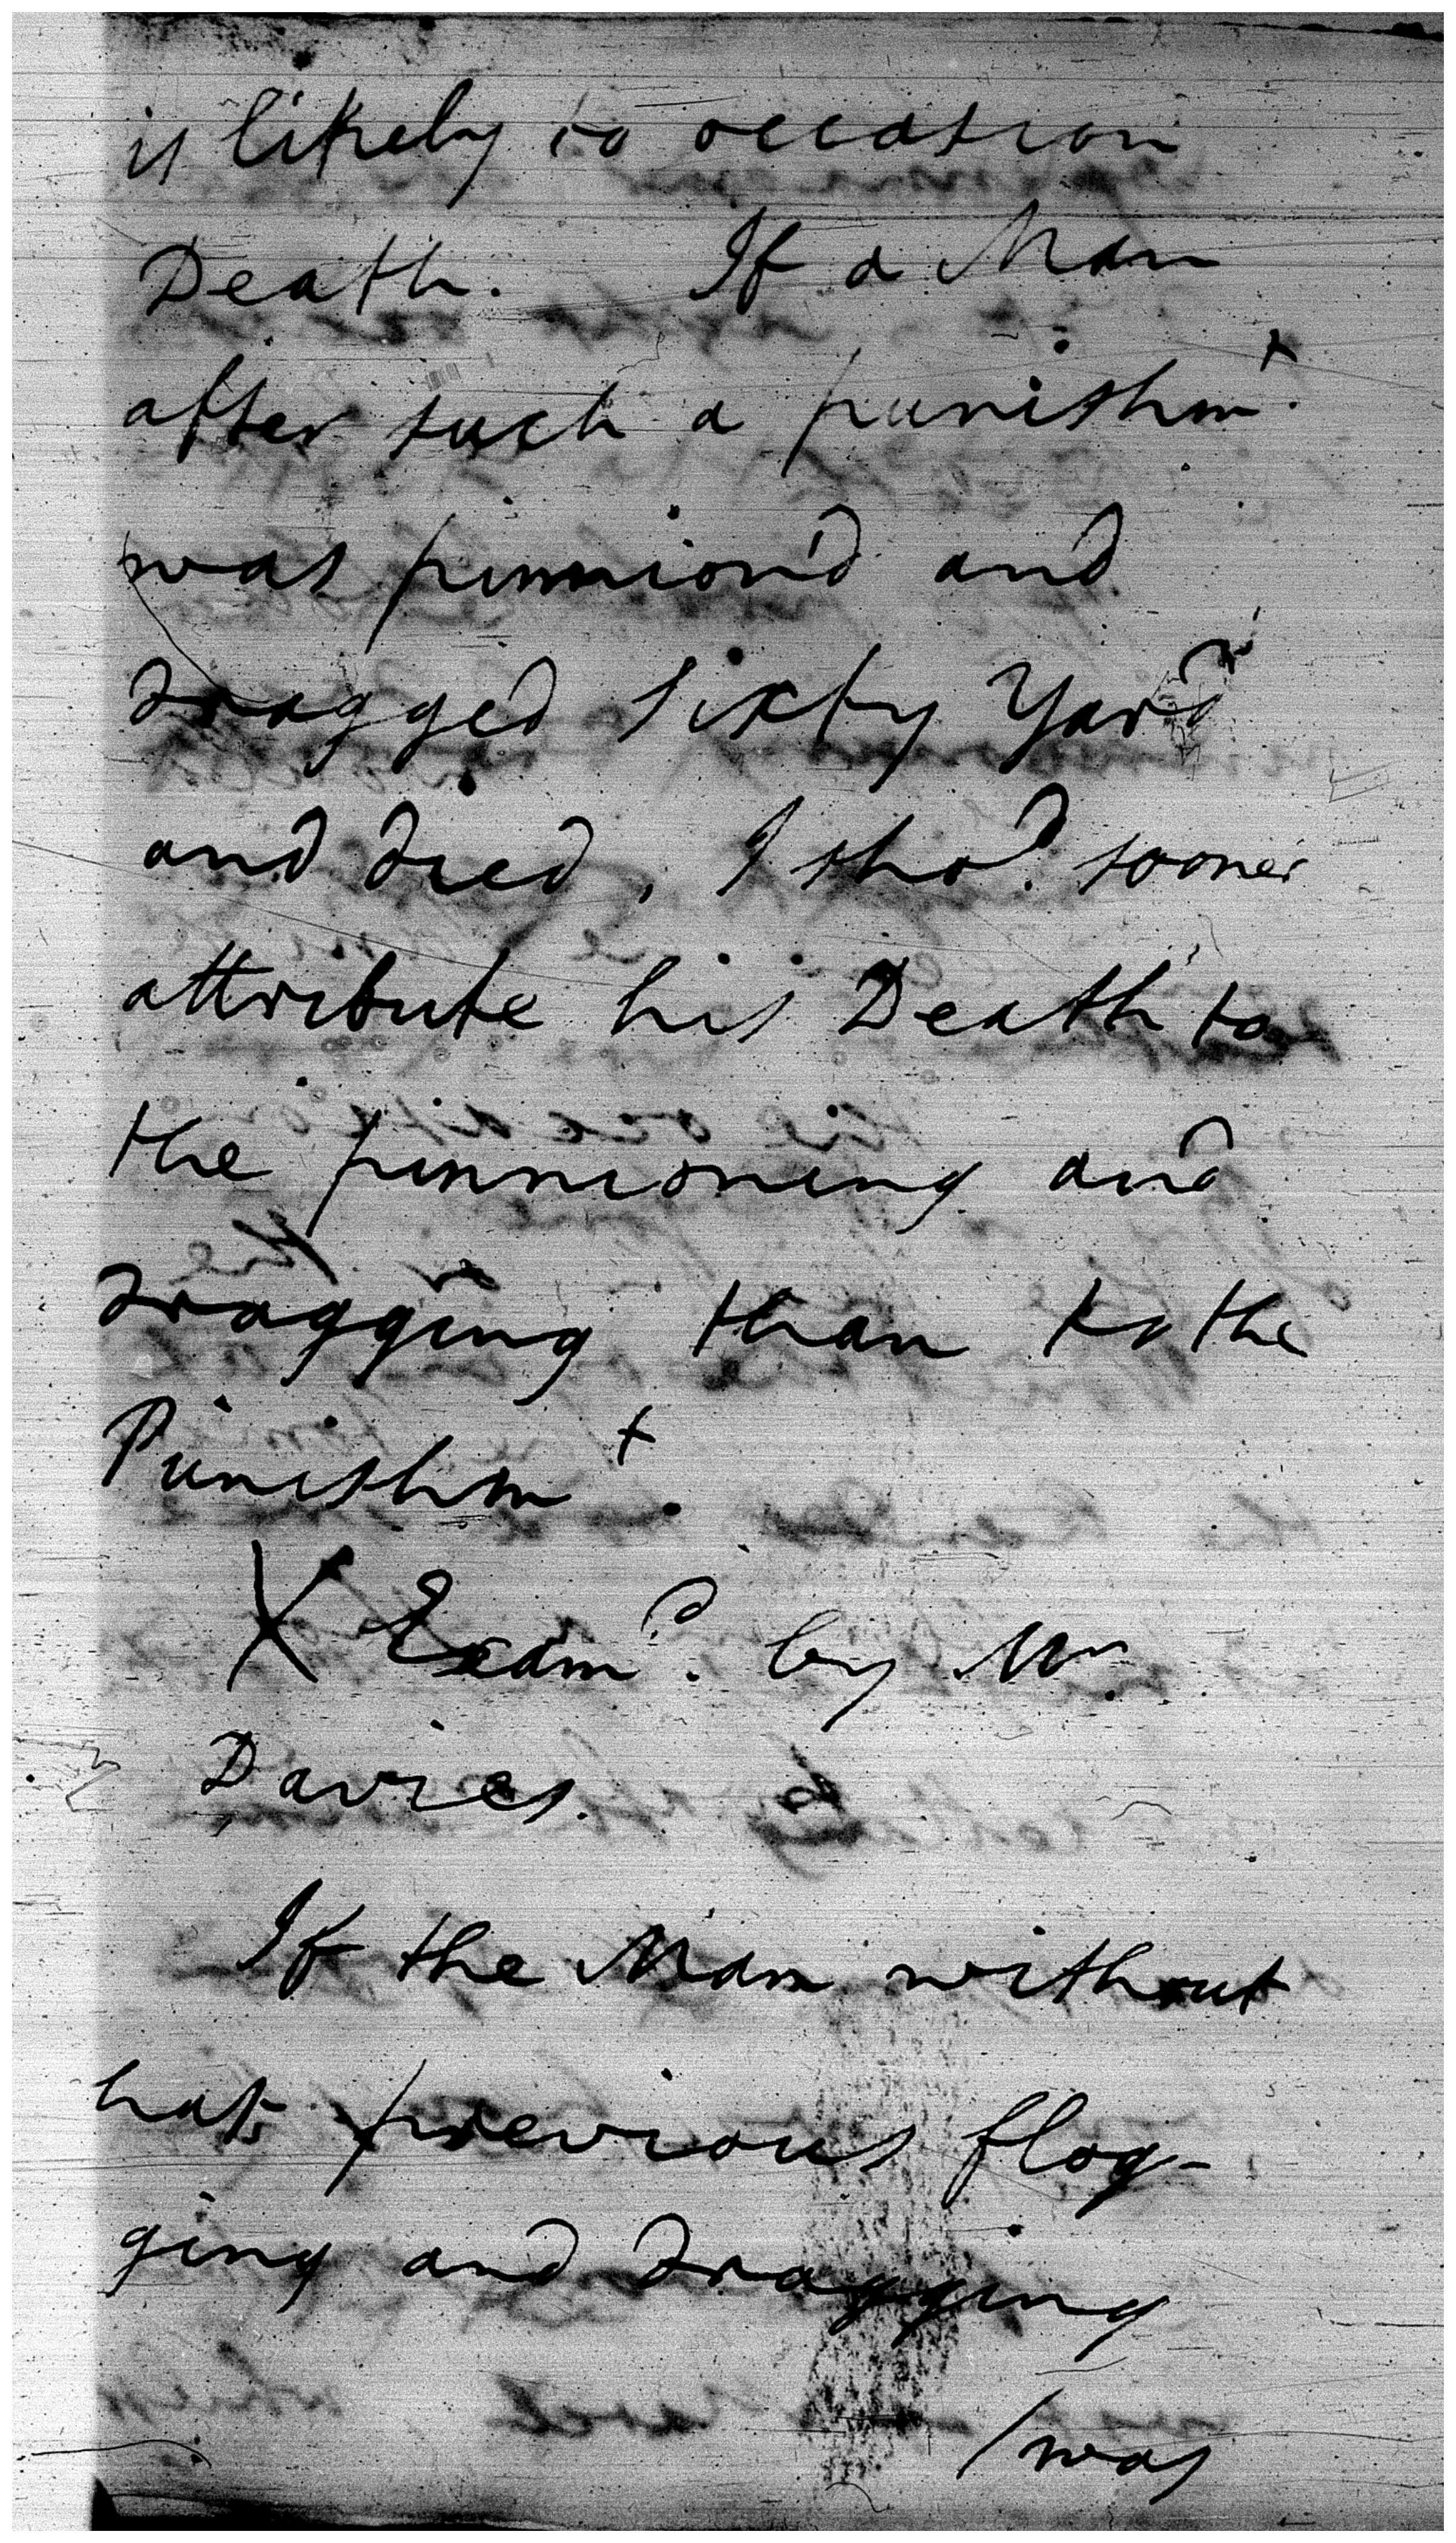 is likely to occasion
Death. If a Man
after such a punishmt.
was pinnion'd and
dragged Sixty Yards
and died, I shod. sooner
attribute his Death to
the pinnioning and
dragging than to the
Punishmt.
X Examd. by Mr.
Davies.
If the Man without
previous flog-
ging and dragging
/was